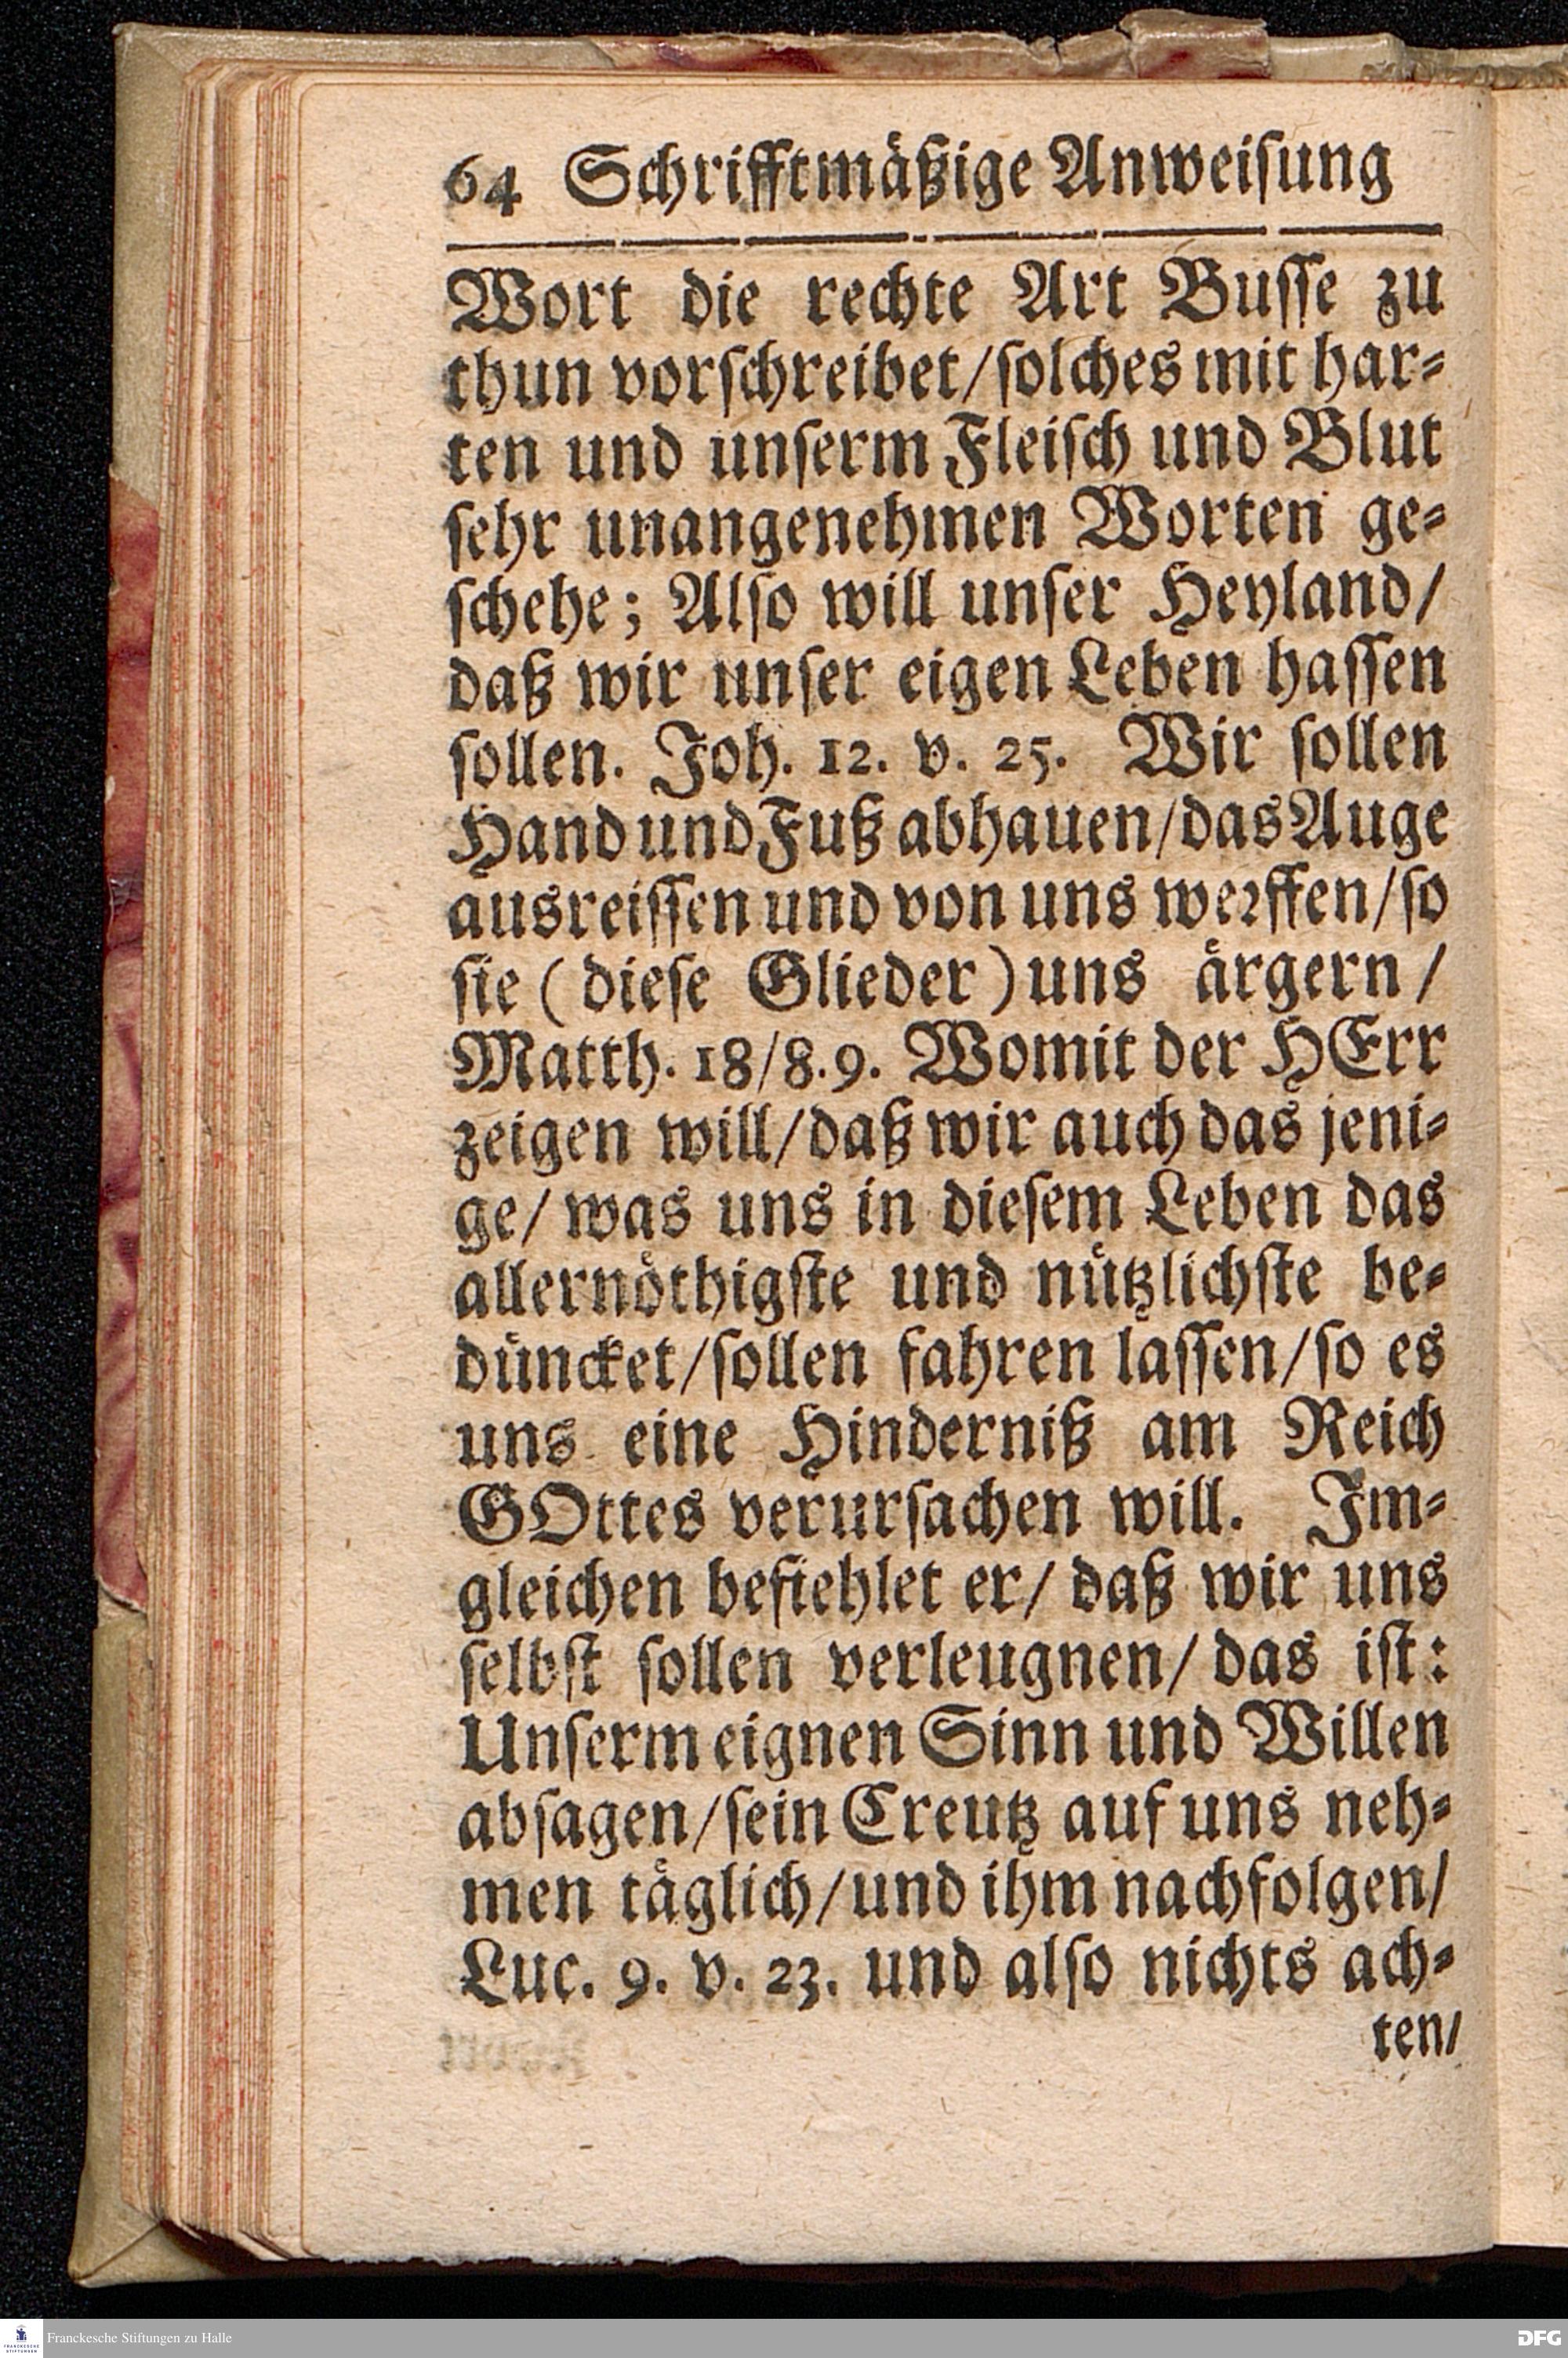 64 Schrifftmäßige Anweisung
Wort die rechte Art Busse zu
thun vorschreibet/solches mit har-
ten und unserm Fleisch und Blut
sehr unangenehmen Worten ge-
schehe; Also will unser Heyland/
daß wir unser eigen Leben hassen
sollen. Joh. 12. v. 25. Wir sollen
Hand und Fuß abhauen/das Auge
ausreissen und von uns werffen/so
sie (diese Glieder) uns ärgern/
Matth. 18/8.9. Womit der HErr
zeigen will/daß wir auch das jeni-
ge/ was uns in diesem Leben das
allernöthigste und nützlichste be-
düncket/sollen fahren lassen/so es
uns eine Hinderniß am Reich
GOttes verursachen will. Im-
gleichen befiehlet er/ daß wir uns
selbst sollen verleugnen/ das ist:
Unserm eignen Sinn und Willen
absagen/sein Creutz auf uns neh-
men täglich/und ihm nachfolgen/
Luc. 9. v. 23. und also nichts ach-
ten/
Franckesche Stiftungen zu Halle
DFG